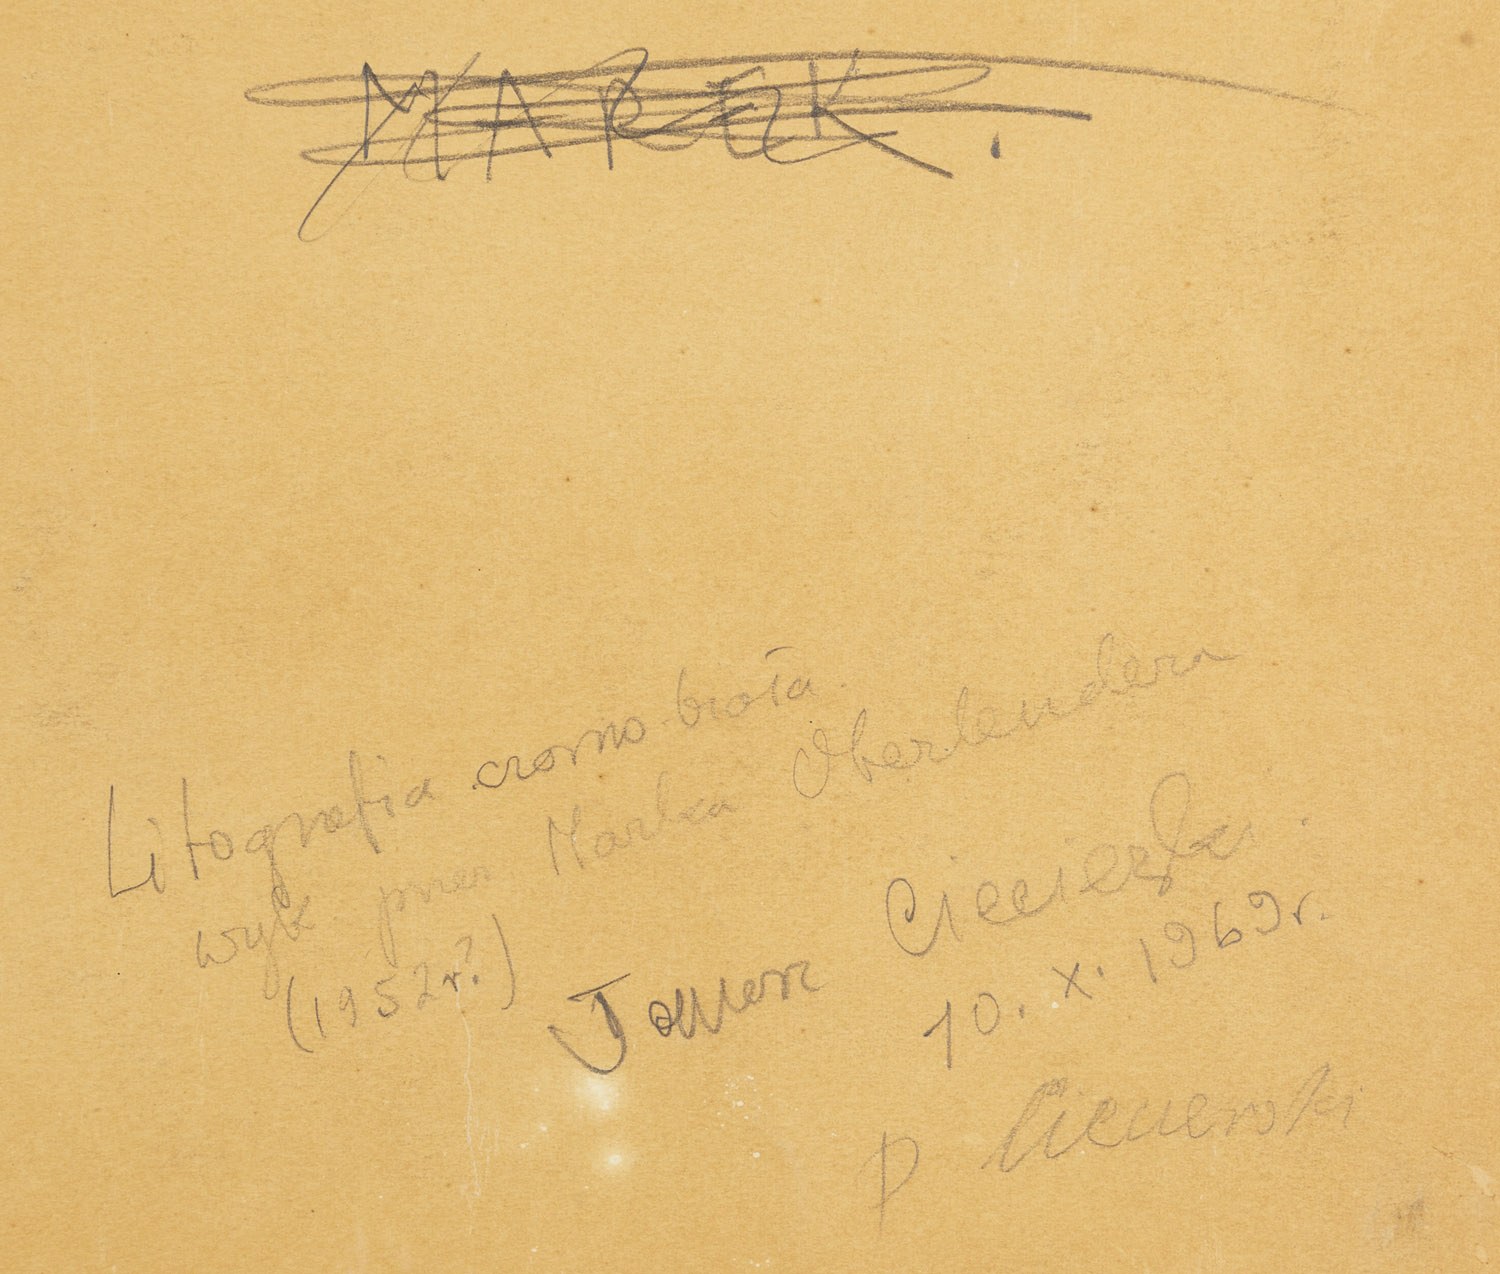 MAREK.
Litografia czarno-biała.
wyk przez Marka Oberlendera
(1952r?)
Tomasz Ciecierski.
10. X. 1969r.
P Ciecierski